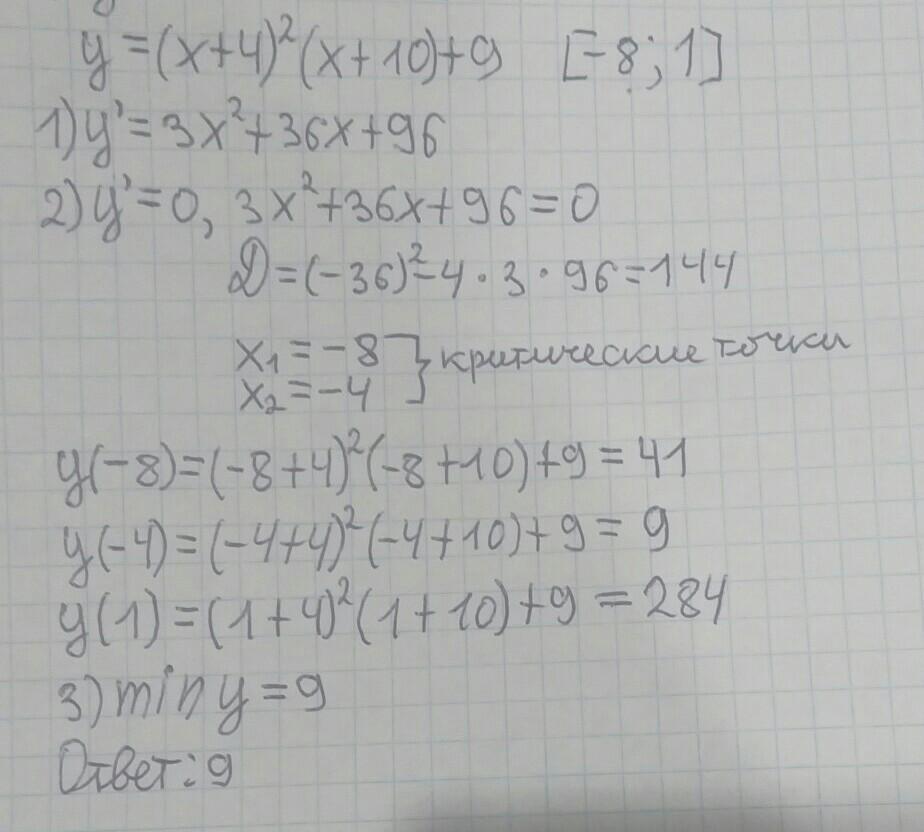 y = (x+4)²(x+10)+9 [-8; 1]
1) y' = 3x²+36x+96
2) y' = 0, 3x²+36x+96=0
D = (-36)²-4·3·96=144
x₁ = -8 } критические точки
x₂ = -4
y(-8) = (-8+4)²(-8+10)+9 = 41
y(-4) = (-4+4)²(-4+10)+9 = 9
y(1) = (1+4)²(1+10)+9 = 284
3) min y = 9
Ответ: 9